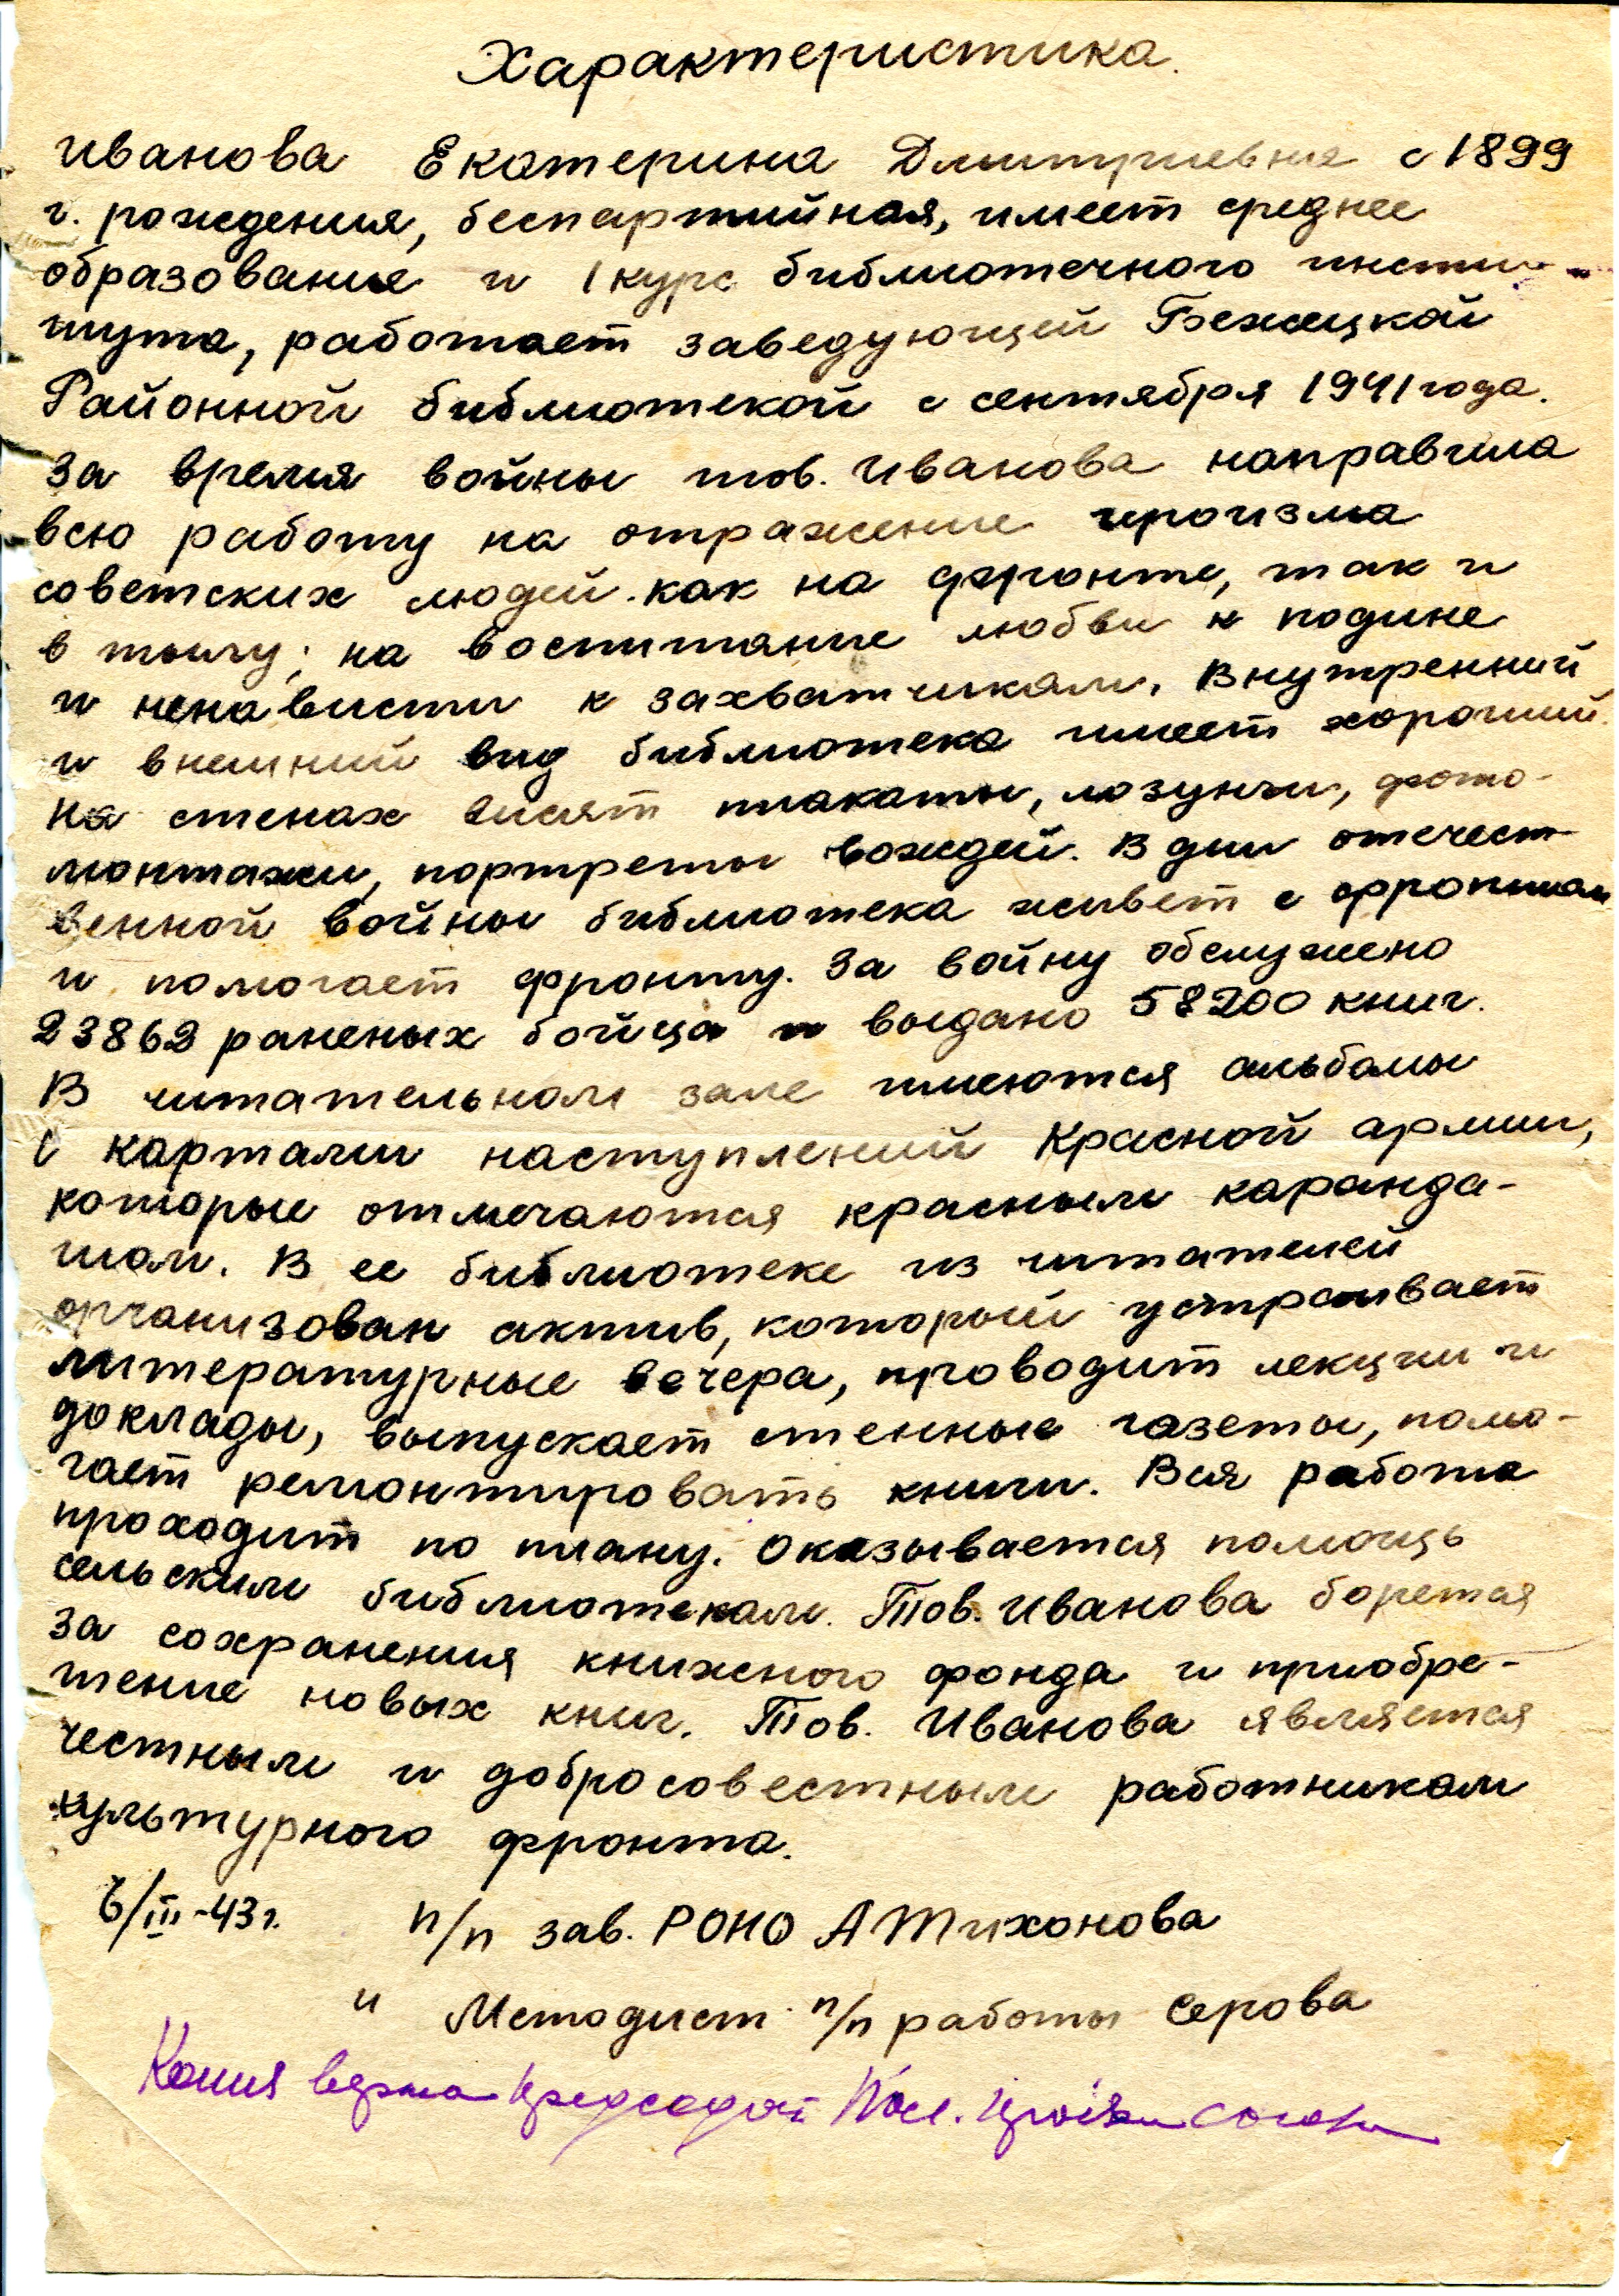 Характеристика.
Иванова Екатерина Дмитриевна с 1899
г. рождения, беспартийная, имеет среднее
образование и 1 курс библиотечного инсти-
тута, работает заведующей Бежецкой
Районной библиотекой с сентября 1941 года.
За время войны тов. Иванова направила
всю работу на отражение героизма
советских людей как на фронте, так и
в тылу; на воспитание любви к родине
и ненависти к захватчикам. Внутренний
и внешний вид библиотека имеет хороший.
На стенах висят плакаты, лозунги, фото-
монтажи, портреты вождей. В дни отечест-
венной войны библиотека живет с фронтом
и помогает фронту. За войну обслужено
23862 раненых бойца и выдано 58200 книг.
В читательном зале имеются альбомы
с картами наступлений Красной армии,
которые отмечаются красным каранда-
шом. В ее библиотеке из читателей
организован актив, который устраивает
литературные вечера, проводит лекции и
доклады, выпускает стенные газеты, помо-
гает ремонтировать книги. Вся работа
проходит по плану. Оказывается помощь
сельским библиотекам. Тов. Иванова борется
за сохранения книжного фонда и приобре-
тение новых книг. Тов. Иванова является
честным и добросовестным работником
культурного фронта.
6/III-43 г. п/п зав. РОНО А Тихонова
" Методист п/п работы Серова
Копия верна Председат